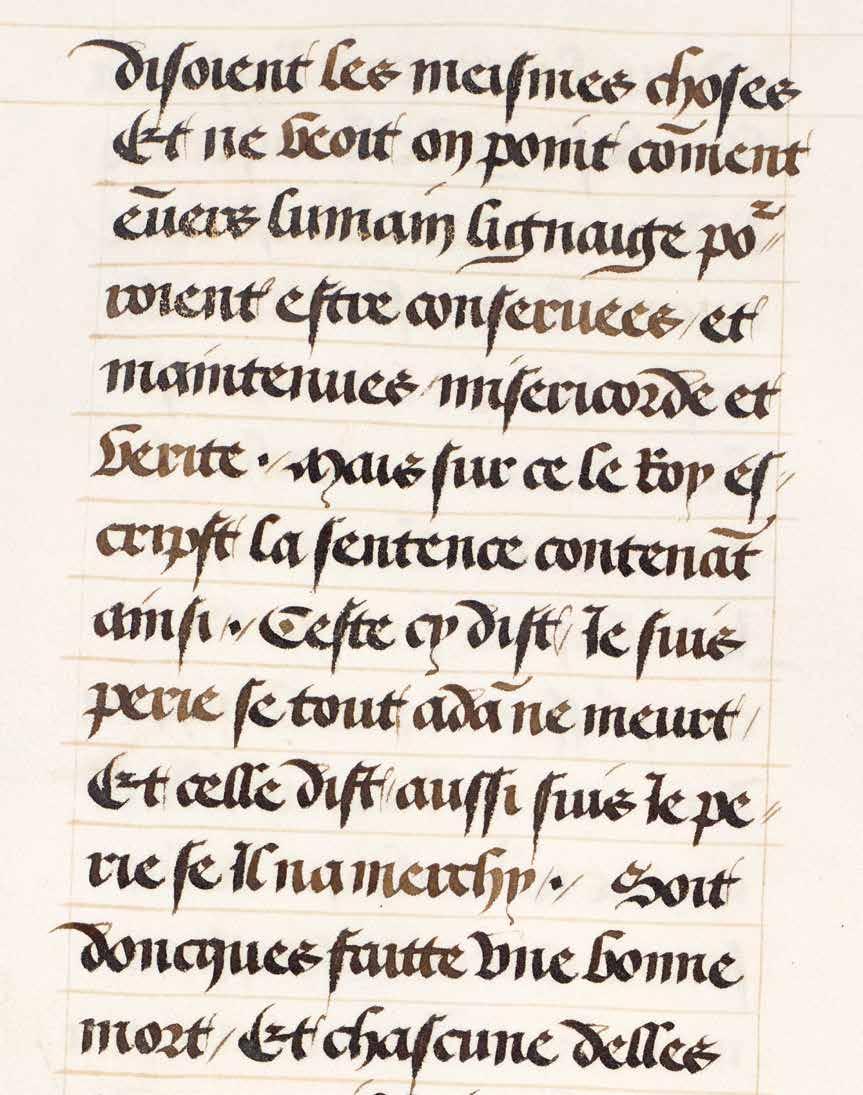 disoient les meismes choses
Et ne veoit on point cōment
eūers lumain lignaige poᷣ//
roient estre conseruees / et
maintenues / misericorde et
verite · // Mais sur ce le Roy es//
cripst la sentence contenāt
ainsi · // Ceste cy dist / Je suis
perie se tout adā ne meurt /
Et celle dist / aussi suis Je pe//
rie se Il na merchy / · // Soit
doncques faitte vne bonne
mort / Et chascune delles